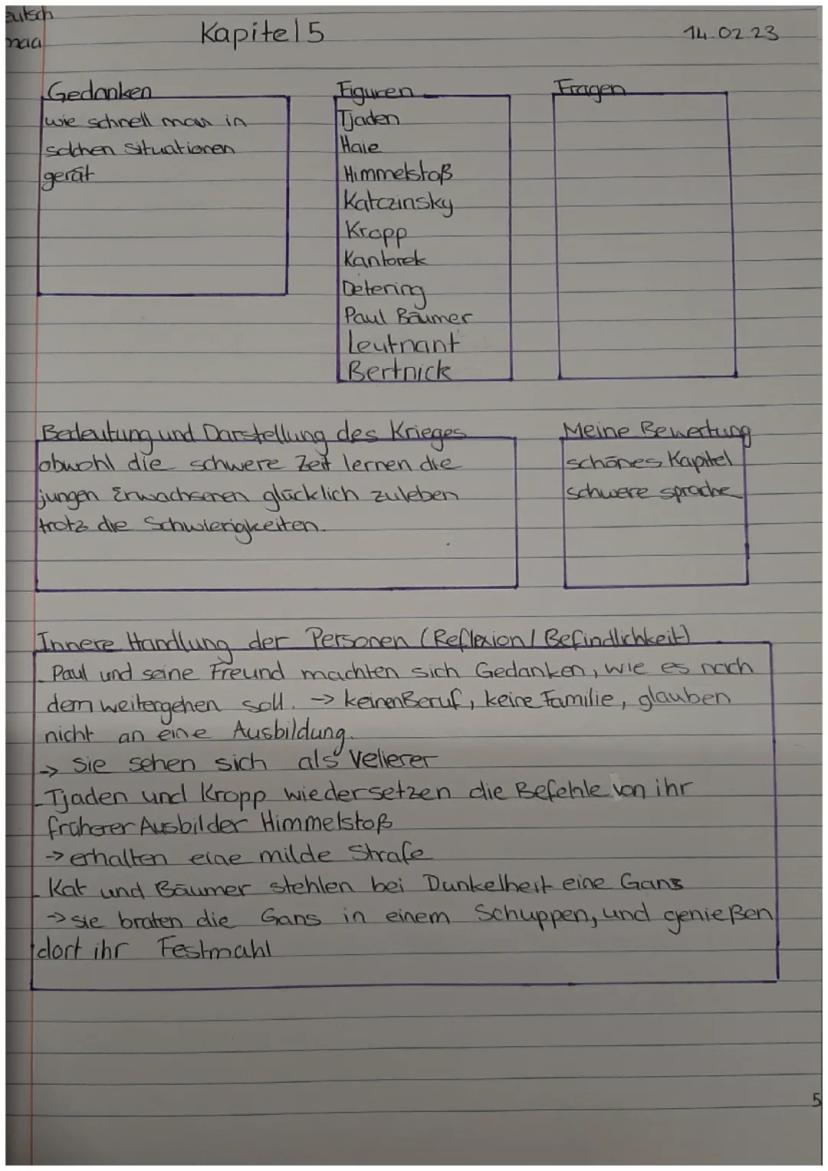 Kapitel 5
14.02.23
Gedanken
wie schnell man in
solchen situationen
gerät
Figuren
Tjaden
Haie
Himmelstoß
Katczinsky
Kropp
Kantorek
Detering
Paul Bäumer
Leutnant
Bertnick
Fragen
Bedeutung und Darstellung des Krieges
obwohl die schwere Zeit lernen die
jungen Erwachsenen glücklich zuleben
trotz die Schwierigkeiten.
Meine Bewertung
schönes Kapitel
schwere sprache
Innere Handlung der Personen (Reflexion/Befindlichkeit)
- Paul und seine Freund machten sich Gedanken, wie es nach
dem weitergehen soll. → keinen Beruf, keine Familie, glauben
nicht an eine Ausbildung.
→ sie sehen sich als Velierer
- Tjaden und Kropp wiedersetzen die Befehle von ihr
früherer Ausbilder Himmelstoß
→ erhalten eine milde Strafe
- Kat und Bäumer stehlen bei Dunkelheit eine Gans
→ sie braten die Gans in einem Schuppen, und genießen
dort ihr Festmahl
5